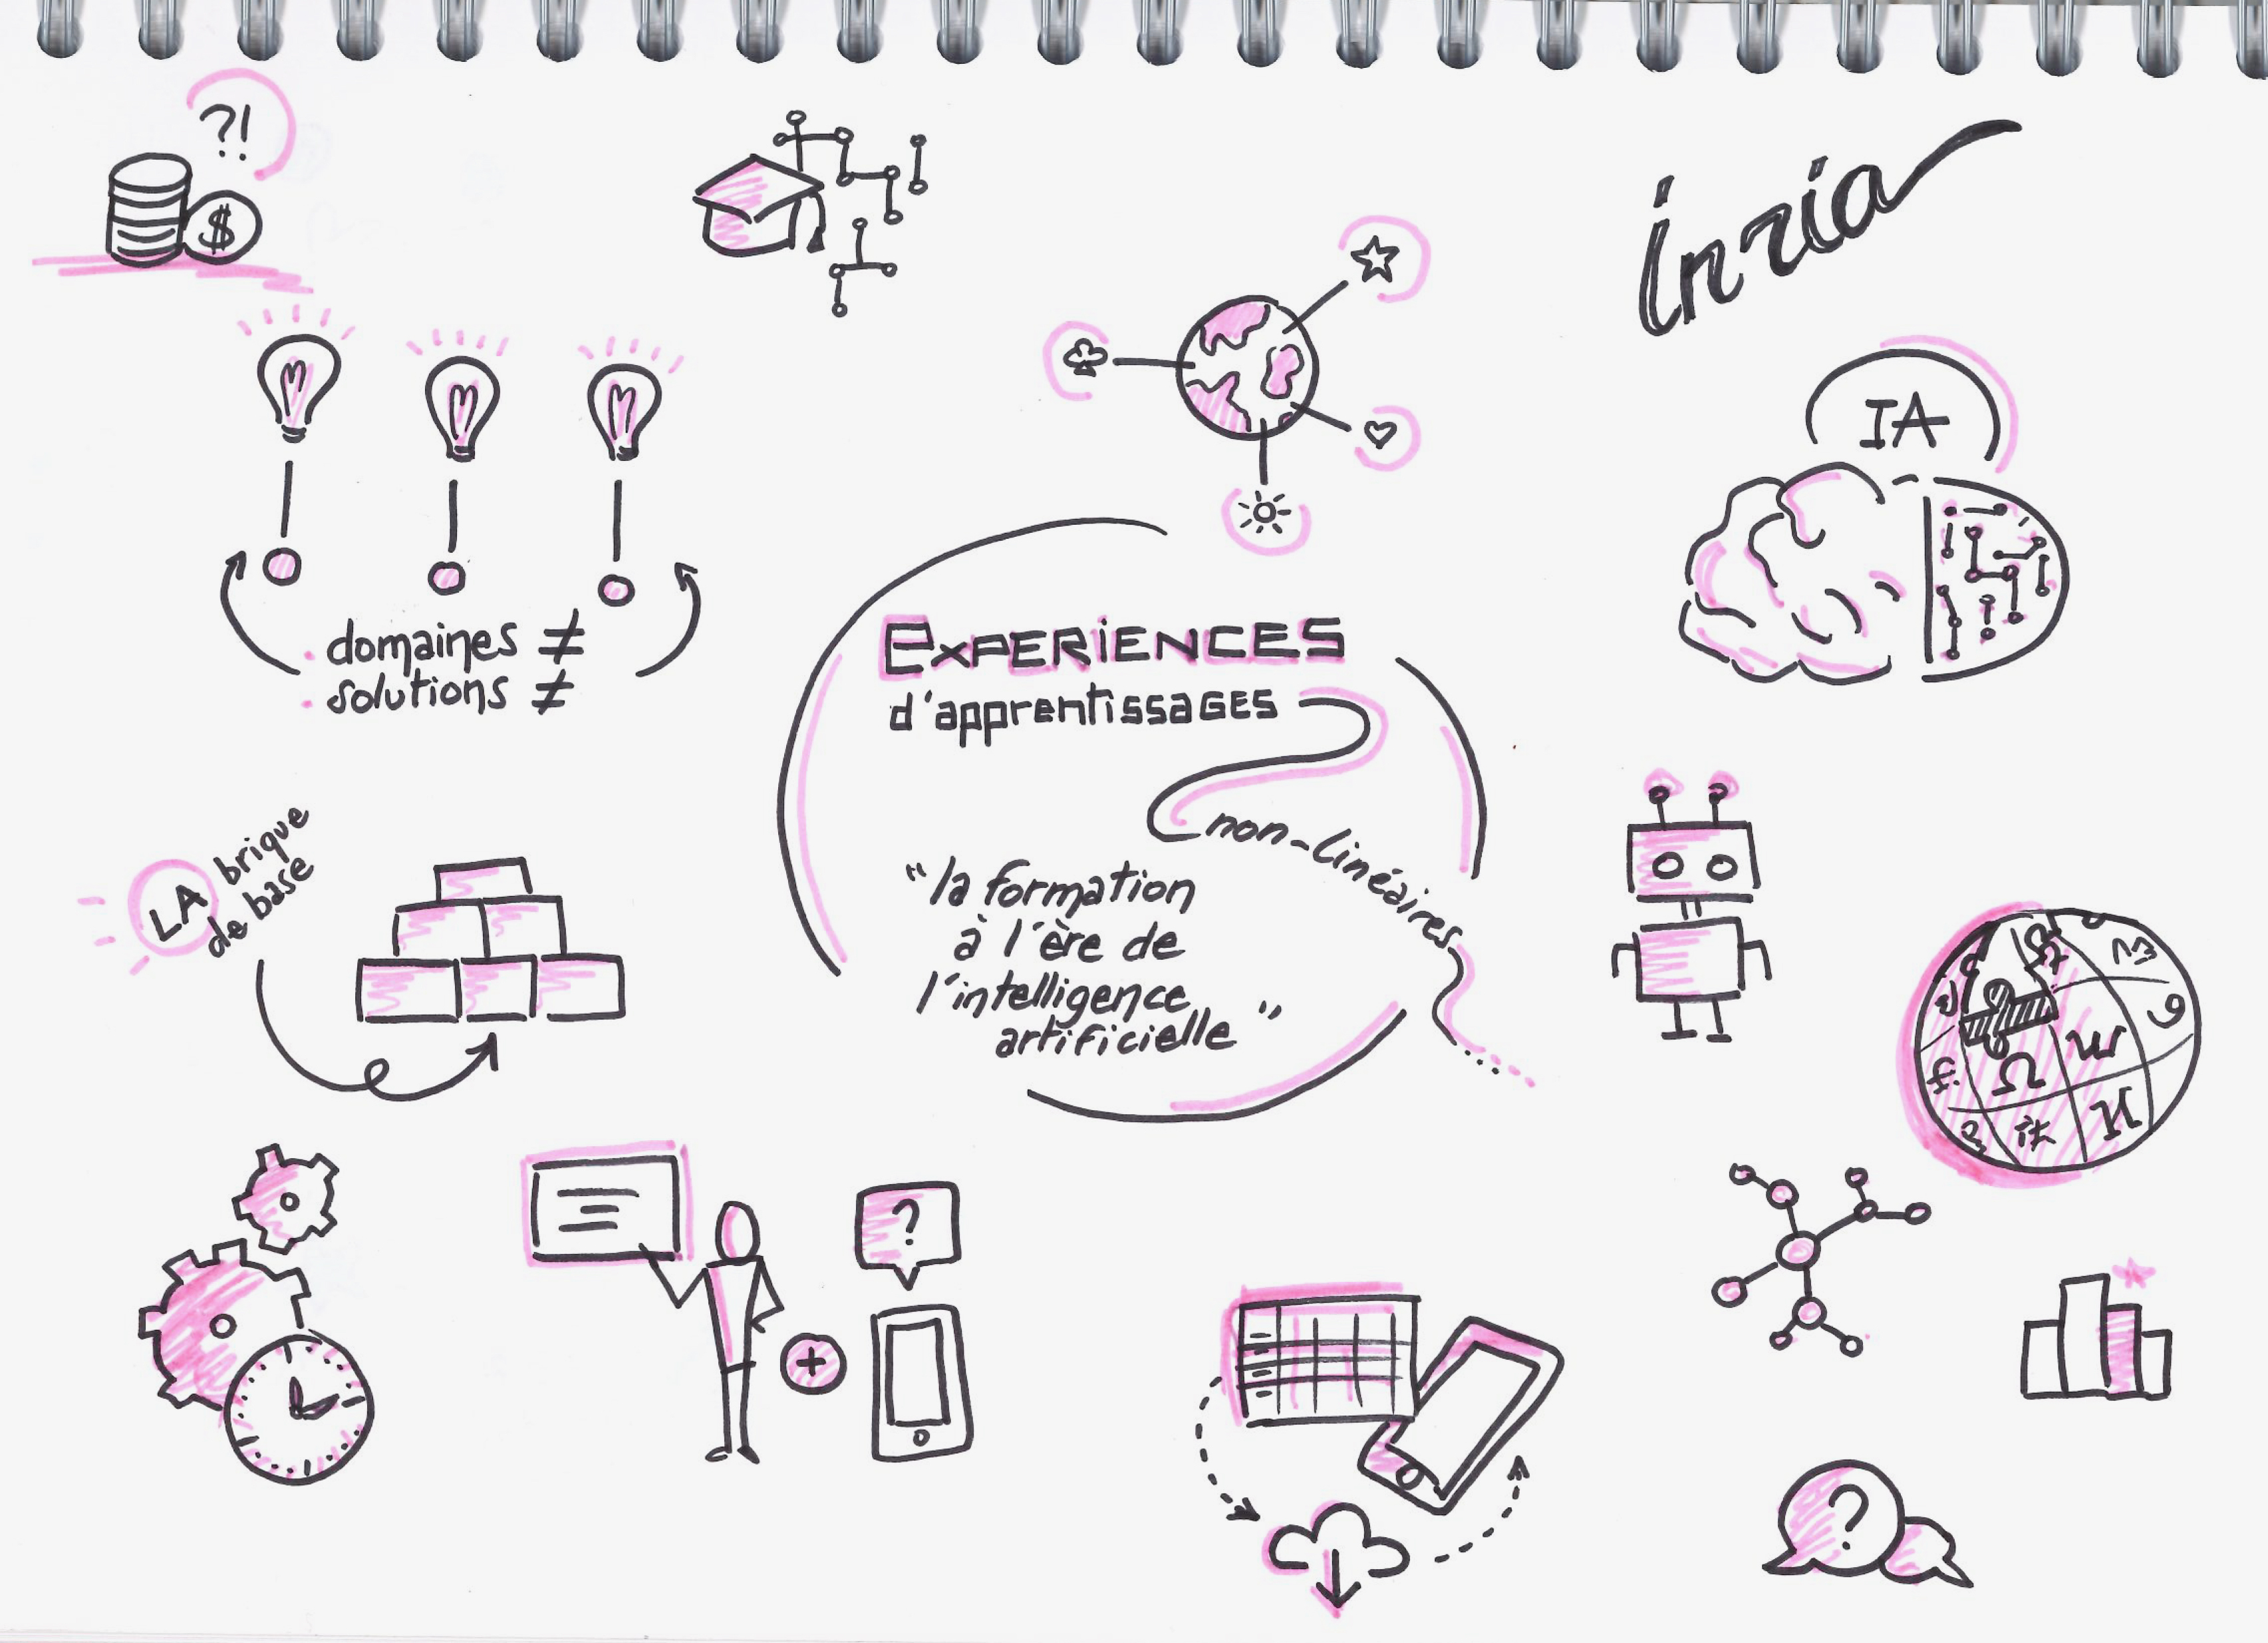 ?!
$
Inria
IA
domaines ≠
solutions ≠
EXPERIENCES
d'apprentissages
non-linéaires
"la formation
à l'ère de
l'intelligence
artificielle"
LA brique
de base
?
+
?